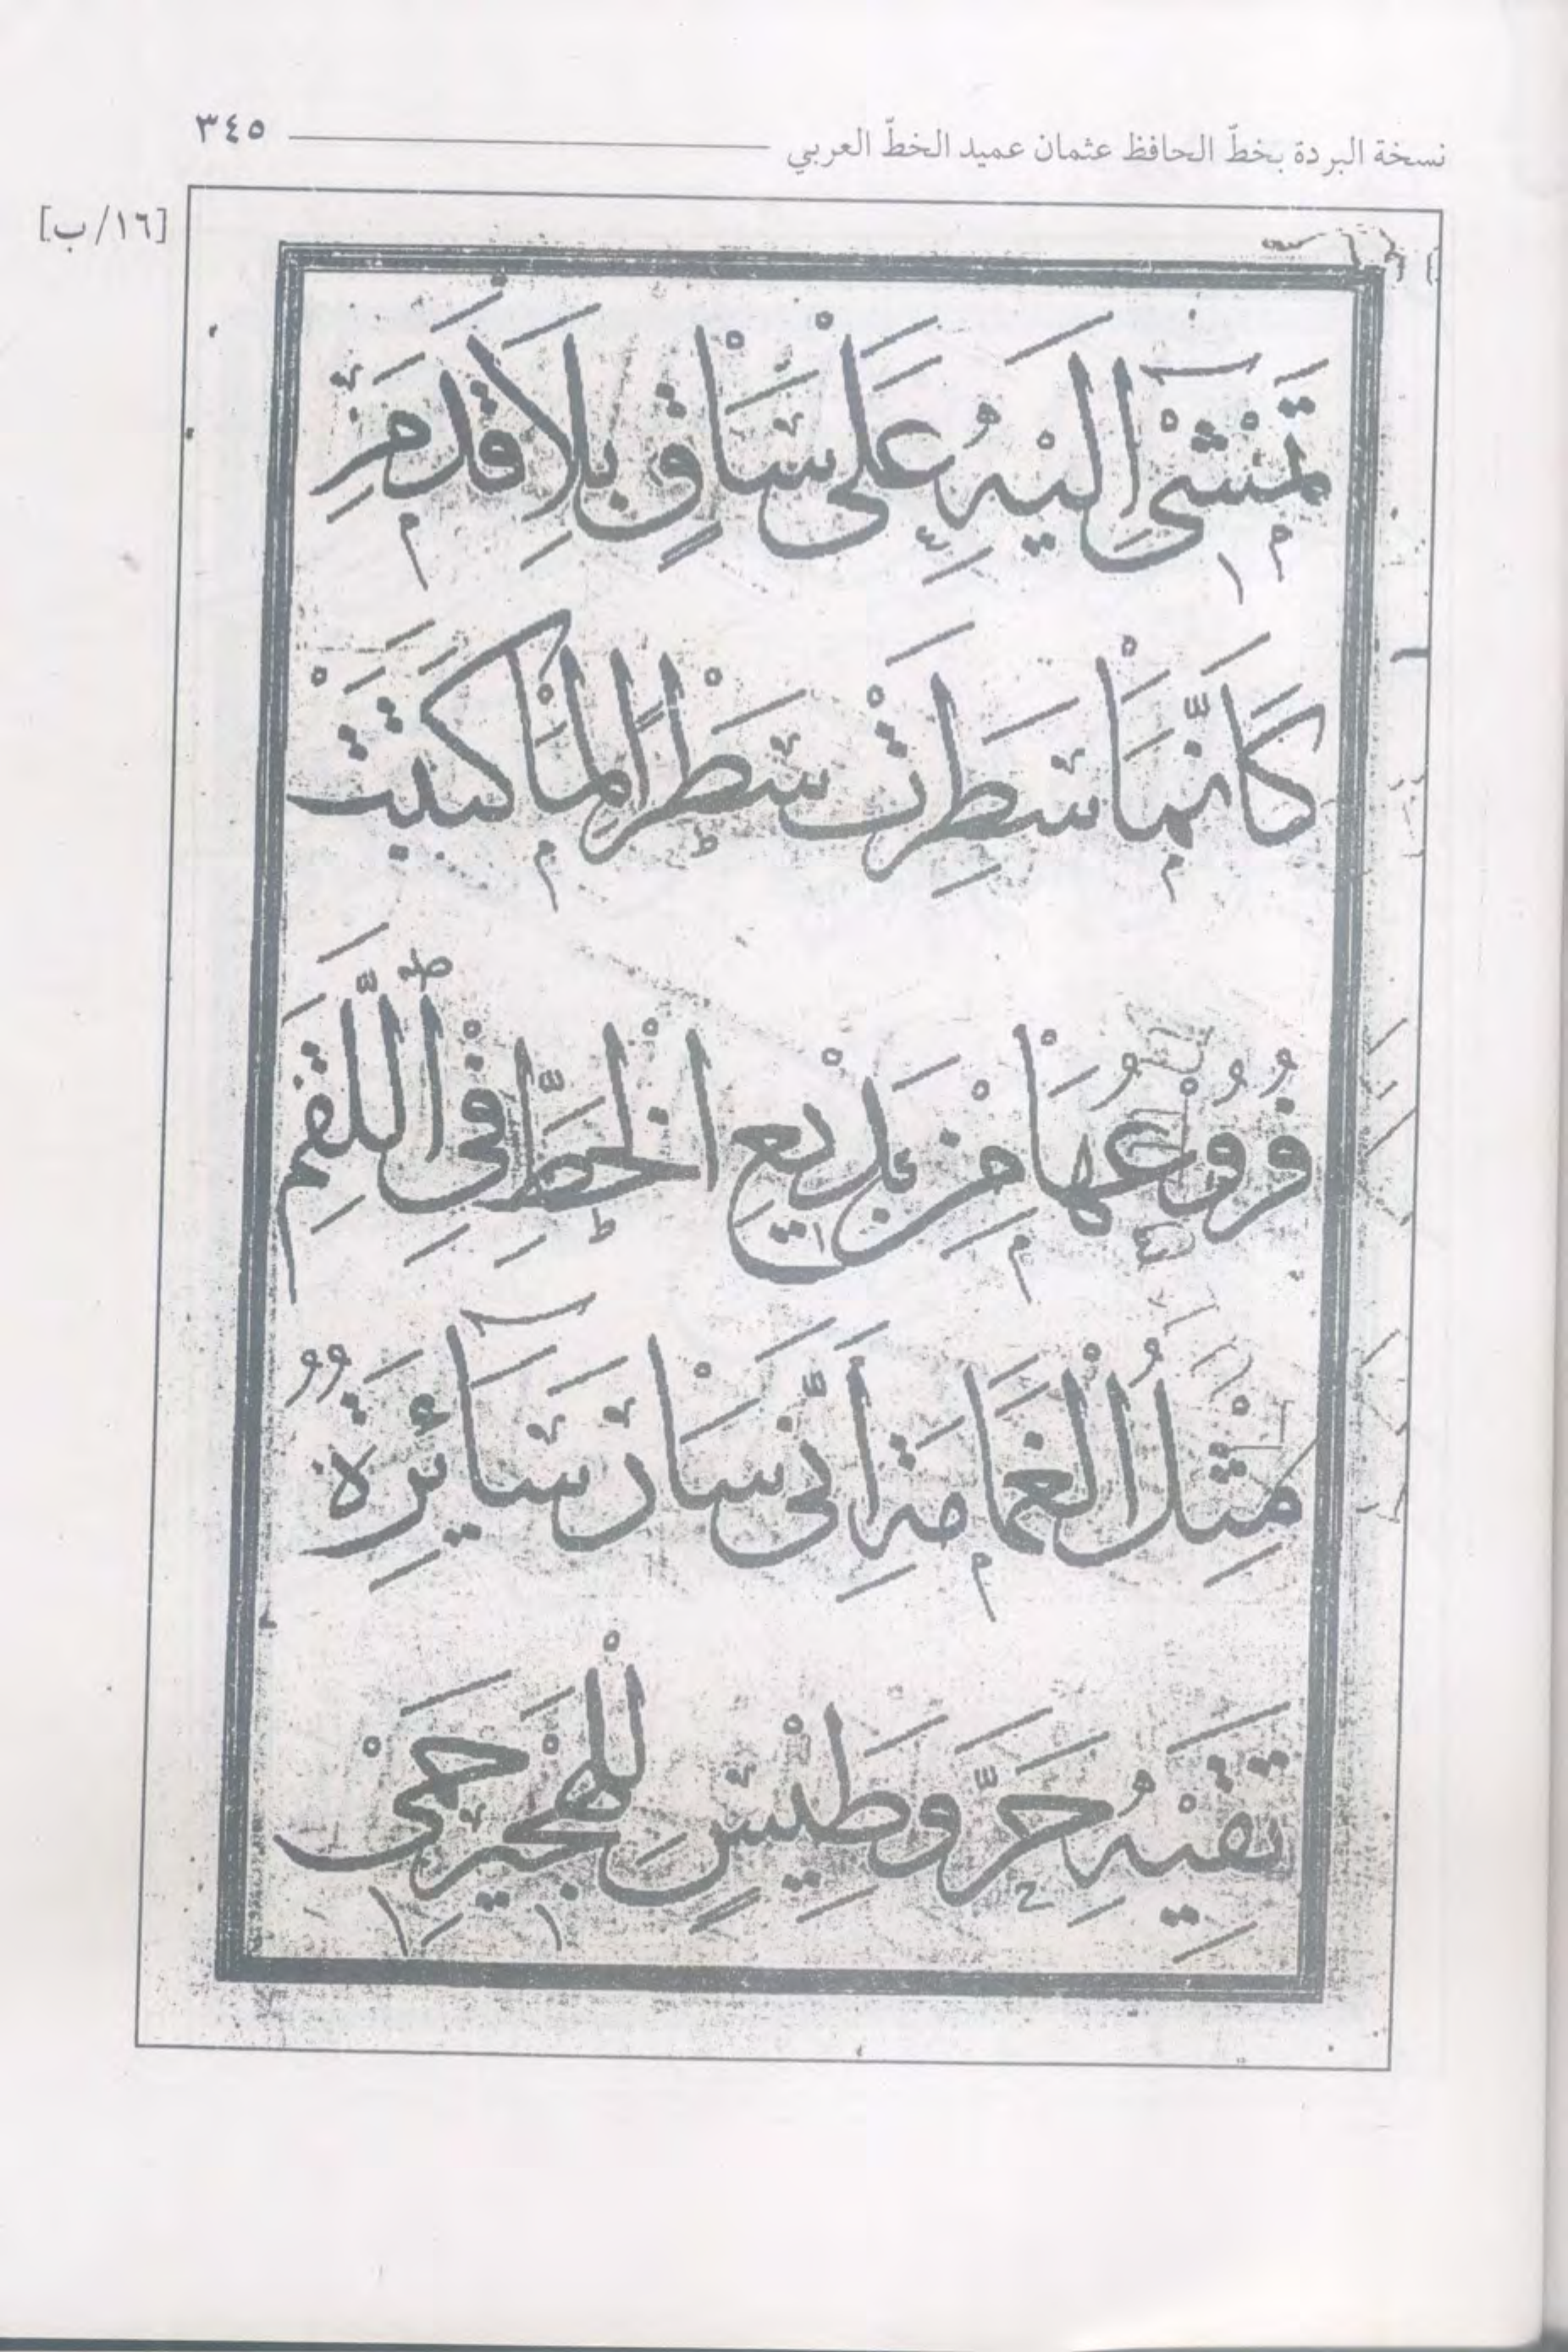 نسخة البردة بخطّ الحافظ عثمان عميد الخطّ العربي ٣٤٥
[١٦/ب]
تَمْشٖى اِلَيْهِ عَلٰى سَاقٍ بِلَا قَدَمِ
كَاَنَّمَا سَطَرَتْ سَطْرًا لِمَا كَتَبَتْ
فُرُوعُهَا مِنْ بَدٖيعِ الْخَطِّ فِى اللَّقَمِ
مِثْلُ الْغَمَامَةِ اَنّٰى سَارَ سَآئِرَةٌ
تَقٖيهِ حَرَّ وَطٖيسٍ لِلْهَجٖيرِ حَمٖى